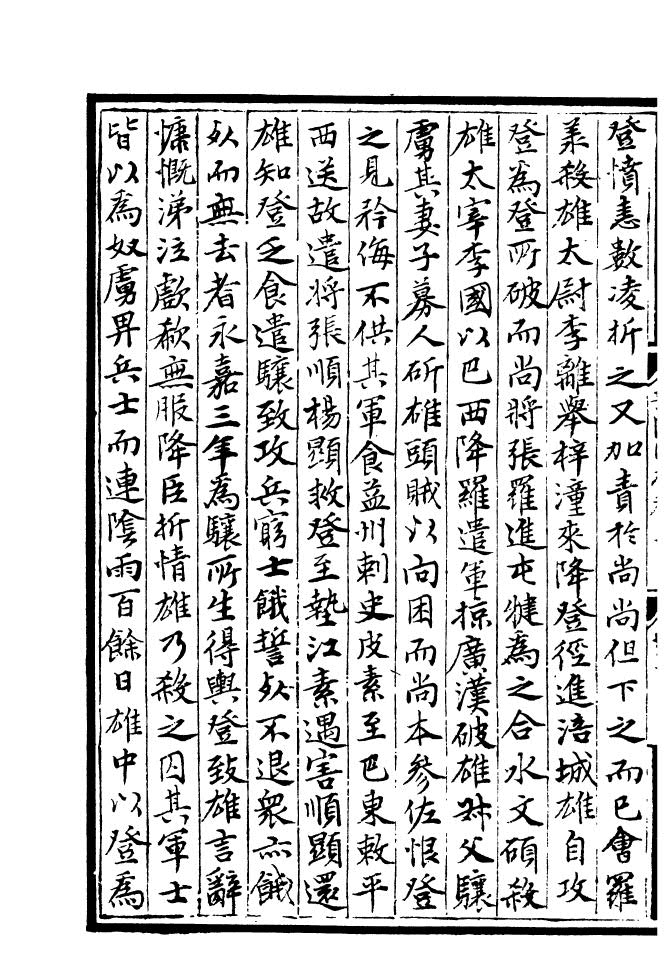 登憤恚數凌折之又加責於尚尚但下之而已會羅
羕殺雄太尉李離舉梓潼來降登徑進涪城雄自攻
登為登所破而尚將張羅進屯犍為之合水文碩殺
雄太宰李國以巴西降羅遣軍掠廣漢破雄叔父驤
虜其妻子募人斫雄頭賊以向困而尚本參佐恨登
之見矜侮不供其軍食益州刺史皮素至巴東敕平
西送故遣將張順楊顯救登至墊江素遇害順顯還
雄知登乏食遣驤致攻兵窮士餓誓死不退衆亦餓
死而無去者永嘉三年為驤所生得輿登致雄言辭
慷慨涕泣歔欷無服降臣折情雄乃殺之囚其軍士
皆以為奴虜畀兵士而連陰雨百餘日雄中以登為